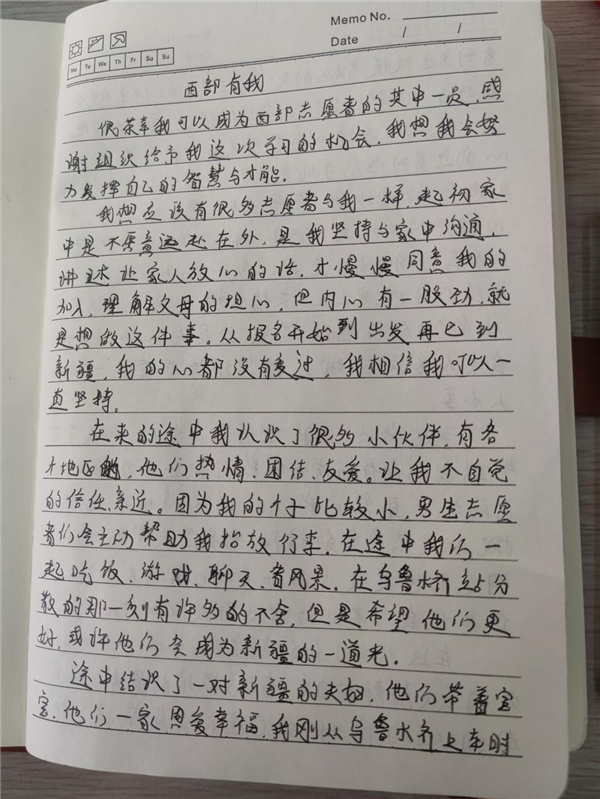 Memo No.
Date / /
Mo Tu We Th Fr Sa Su
西部有我
很荣幸我可以成为西部志愿者的其中一员,感
谢组织给予我这次学习的机会,我想我会努
力发挥自己的智慧与才能。
我想应该有很多志愿者与我一样,起初家
中是不愿意远赴在外,是我坚持与家中沟通,
讲述让家人放心的话,才慢慢同意我的
加入,理解父母的担心,但内心有一股劲,就
是想做这件事。从报名开始到出发再已到
新疆,我的心都没有变过,我相信我可以一
直坚持。
在来的途中我认识了很多小伙伴,有各
个地区的,他们热情、团结、友爱。让我不自觉
的信任、亲近。因为我的个子比较小,男生志愿
者们会主动帮助我抬放行李,在途中我们一
起吃饭、游戏、聊天、看风景。在乌鲁木齐站分
散的那一刻有许多的不舍,但是希望他们更
好,或许他们会成为新疆的一道光。
途中结识了一对新疆的夫妇,他们带着宝
宝,他们一家恩爱幸福,我刚从乌鲁木齐上车时